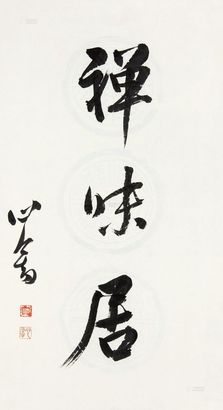 禅味居
心畬